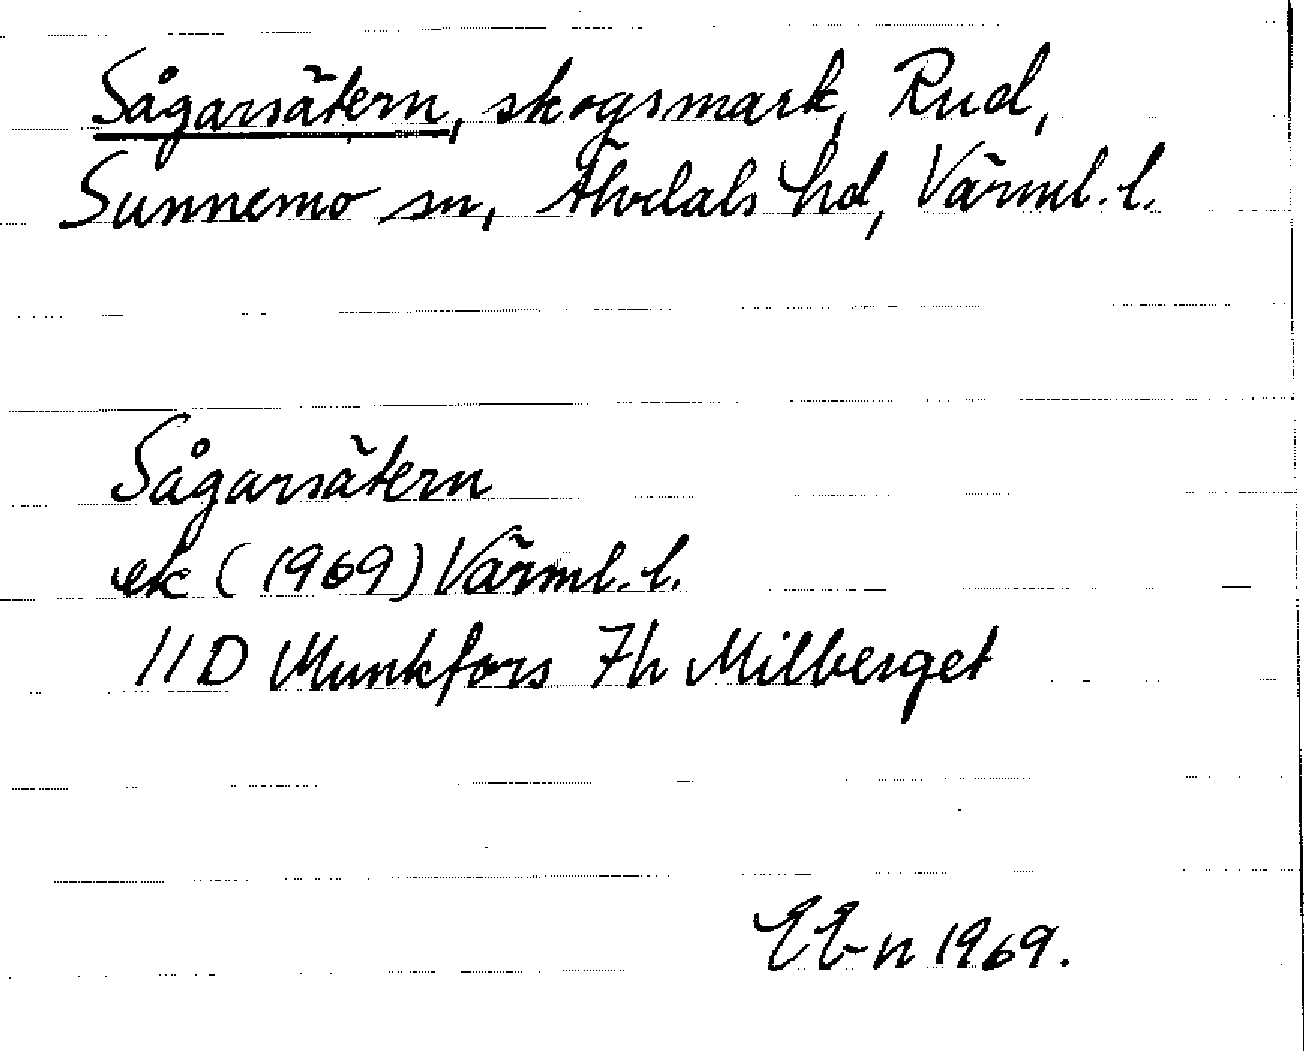 Sågarsätern, skogsmark, Rud,
Sunnemo sn, Älvdals hd, Värml. l.
Sågarsätern
ek (1969) Värml. l.
11D Munkfors 7h Milberget
EE-n 1969.